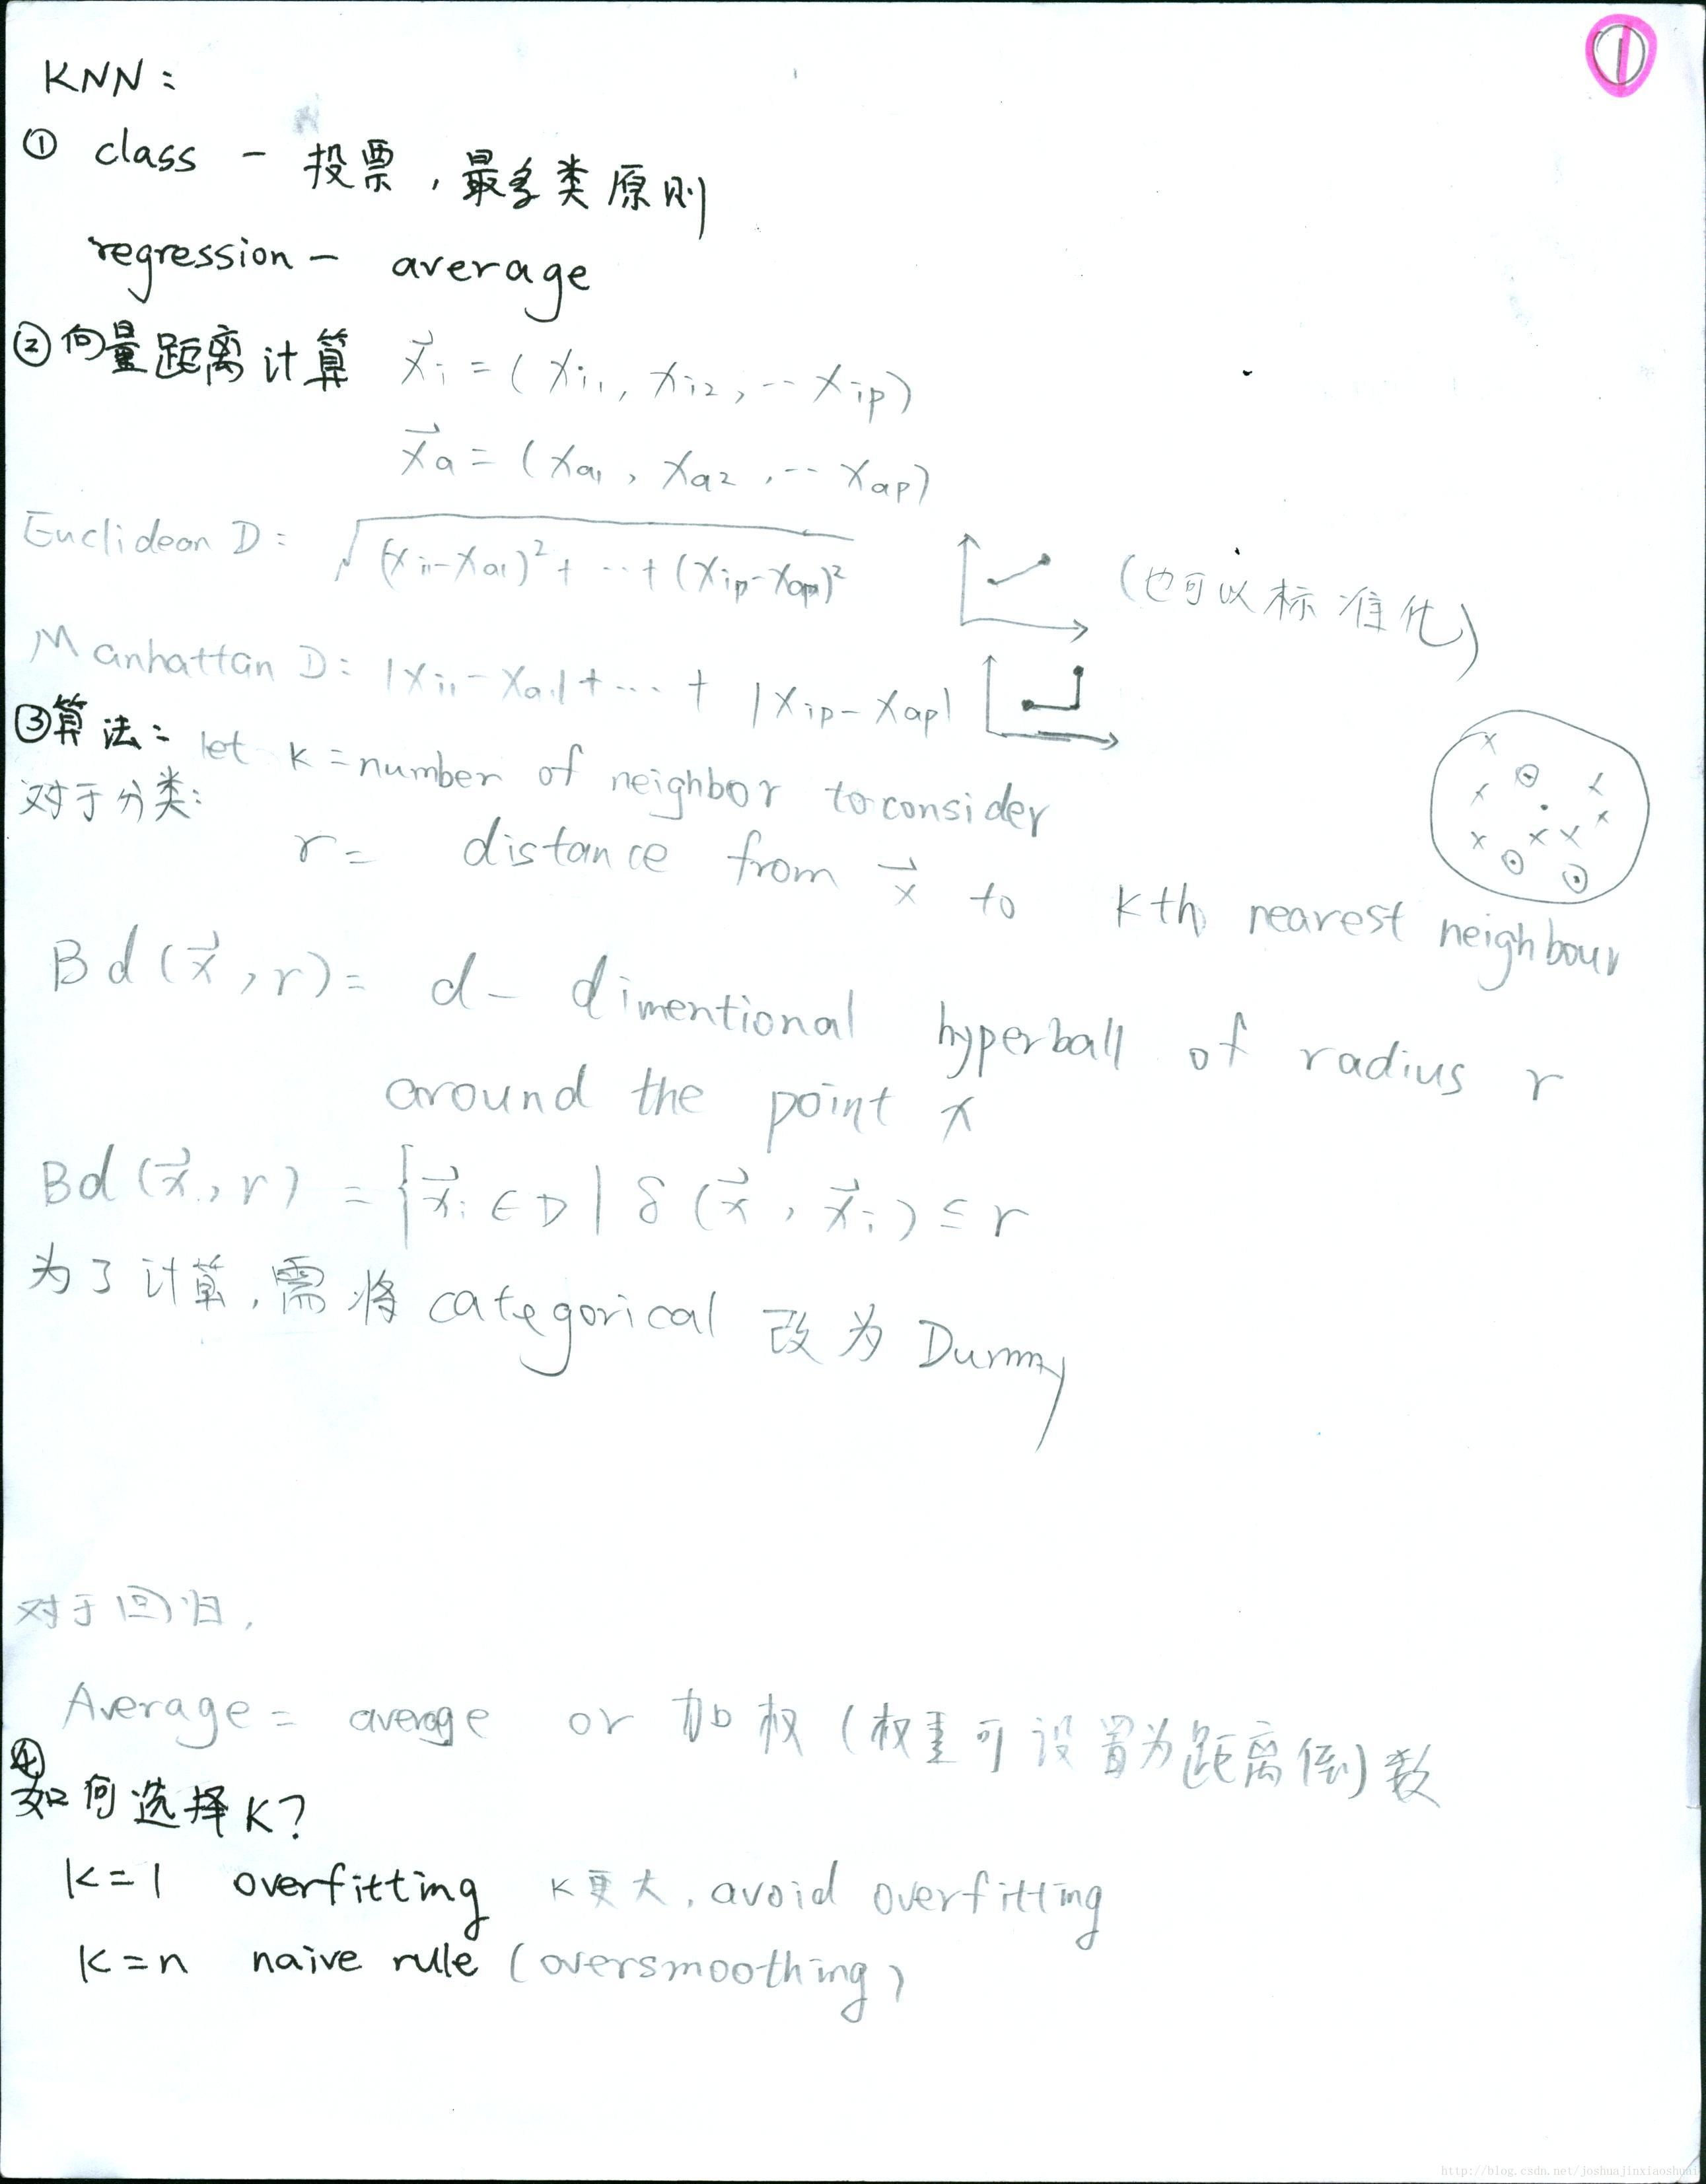 ①
KNN:
① class - 投票，最多类原则
regression - average
② 向量距离计算 x⃗i = (xi1, xi2, ... xip)
x⃗a = (xa1, xa2, ... xap)
Euclidean D: √((xi1-xa1)² + ... + (xip-xap)²) (也可以标准化)
Manhattan D: |xi1-xa1| + ... + |xip-xap|
③ 算法: let k = number of neighbor to consider
对于分类:
r = distance from x⃗ to kth nearest neighbour
Bd(x⃗, r) = d - dimentional hyperball of radius r
around the point x
Bd(x⃗, r) = {x⃗i ∈ D | δ(x⃗, x⃗i) ≤ r
为了计算，需将categorical改为Dummy
对于回归，
Average = average or 加权 (权重可设置为距离倒)数
④
如何选择K?
k=1 overfitting k更大, avoid overfitting
k=n naive rule (oversmoothing)
http://blog.csdn.net/joshuajinxiaoshuai